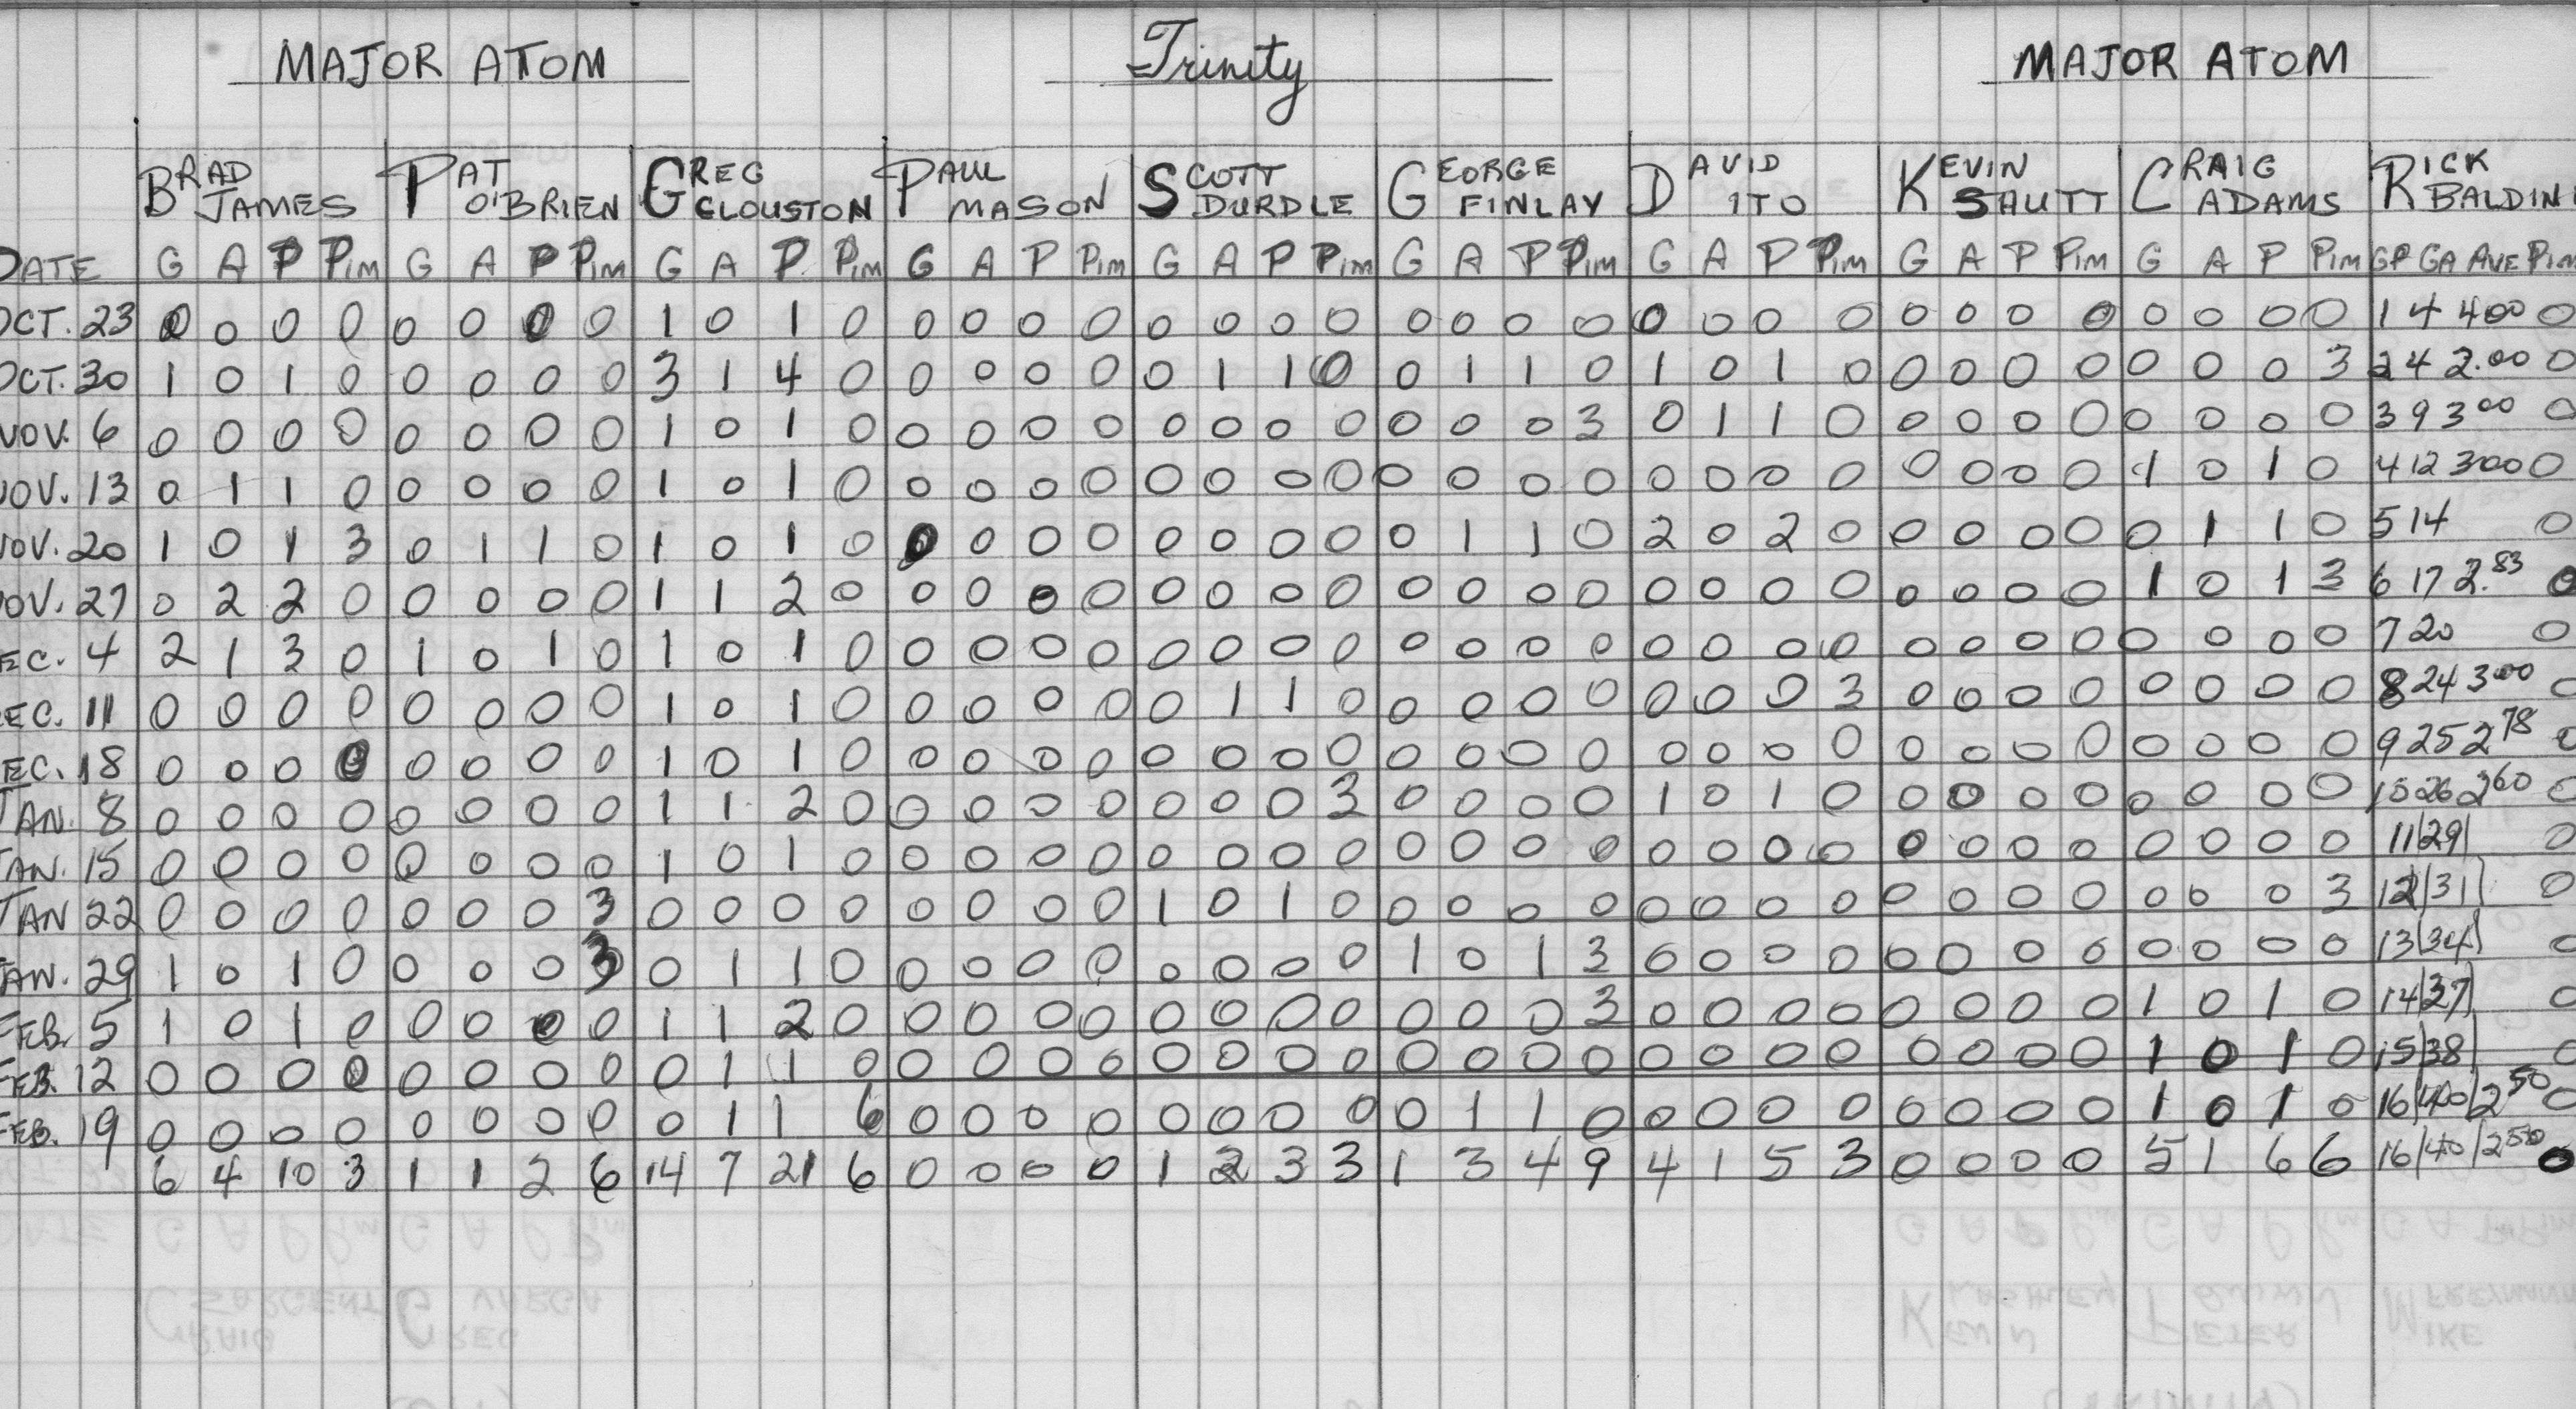 MAJOR ATOM Trinity MAJOR ATOM
BRAD PAT GREG PAUL SCOTT GEORGE DAVID KEVIN CRAIG RICK
JAMES O'BRIEN CLOUSTON MASON DURDLE FINLAY ITO SHUTT ADAMS BALDIN
DATE G A P Pim G A P Pim G A P Pim G A P Pim G A P Pim G A P Pim G A P Pim G A P Pim G A P Pim GP GA AVE Pim
OCT. 23 0 0 0 0 0 0 0 0 1 0 1 0 0 0 0 0 0 0 0 0 0 0 0 0 0 0 0 0 0 0 0 0 0 0 0 0 1 4 4 00 0
OCT. 30 1 0 1 0 0 0 0 0 3 1 4 0 0 0 0 0 0 1 1 0 0 1 1 0 1 0 1 0 0 0 0 0 0 0 0 3 2 4 2.00 0
NOV. 6 0 0 0 0 0 0 0 0 1 0 1 0 0 0 0 0 0 0 0 0 0 0 0 3 0 1 1 0 0 0 0 0 0 0 0 0 3 9 3 00 0
NOV. 13 0 1 1 0 0 0 0 0 1 0 1 0 0 0 0 0 0 0 0 0 0 0 0 0 0 0 0 0 0 0 0 0 1 0 1 0 4 12 3 00 0
NOV. 20 1 0 1 3 0 1 1 0 1 0 1 0 0 0 0 0 0 0 0 0 0 1 1 0 2 0 2 0 0 0 0 0 0 1 1 0 5 14 0
NOV. 27 0 2 2 0 0 0 0 0 1 1 2 0 0 0 0 0 0 0 0 0 0 0 0 0 0 0 0 0 0 0 0 0 1 0 1 3 6 17 2.83 0
EC. 4 2 1 3 0 1 0 1 0 1 0 1 0 0 0 0 0 0 0 0 0 0 0 0 0 0 0 0 0 0 0 0 0 0 0 0 0 7 20 0
EC. 11 0 0 0 0 0 0 0 0 1 0 1 0 0 0 0 0 0 1 1 0 0 0 0 0 0 0 0 3 0 0 0 0 0 0 0 0 8 24 3 00 0
EC. 18 0 0 0 0 0 0 0 0 1 0 1 0 0 0 0 0 0 0 0 0 0 0 0 0 0 0 0 0 0 0 0 0 0 0 0 0 9 25 2 78 0
JAN. 8 0 0 0 0 0 0 0 0 1 1 2 0 0 0 0 0 0 0 0 3 0 0 0 0 1 0 1 0 0 0 0 0 0 0 0 0 10 26 2 60 0
JAN. 15 0 0 0 0 0 0 0 0 1 0 1 0 0 0 0 0 0 0 0 0 0 0 0 0 0 0 0 0 0 0 0 0 0 0 0 0 11/29/ 0
JAN 22 0 0 0 0 0 0 0 3 0 0 0 0 0 0 0 0 1 0 1 0 0 0 0 0 0 0 0 0 0 0 0 0 0 0 0 3 12/31/ 0
JAN. 29 1 0 1 0 0 0 0 3 0 1 1 0 0 0 0 0 0 0 0 0 1 0 1 3 0 0 0 0 0 0 0 0 0 0 0 0 13/34/ 0
FEB. 5 1 0 1 0 0 0 0 0 1 1 2 0 0 0 0 0 0 0 0 0 0 0 0 3 0 0 0 0 0 0 0 0 1 0 1 0 14/37/ 0
FEB. 12 0 0 0 0 0 0 0 0 0 1 1 0 0 0 0 0 0 0 0 0 0 0 0 0 0 0 0 0 0 0 0 0 1 0 1 0 15/38/ 0
FEB. 19 0 0 0 0 0 0 0 0 0 1 1 6 0 0 0 0 0 0 0 0 0 1 1 0 0 0 0 0 0 0 0 0 1 0 1 0 16/40/2 50 0
6 4 10 3 1 1 2 6 14 7 21 6 0 0 0 0 1 2 3 3 1 3 4 9 4 1 5 3 0 0 0 0 5 1 6 6 16/40/2 50 0